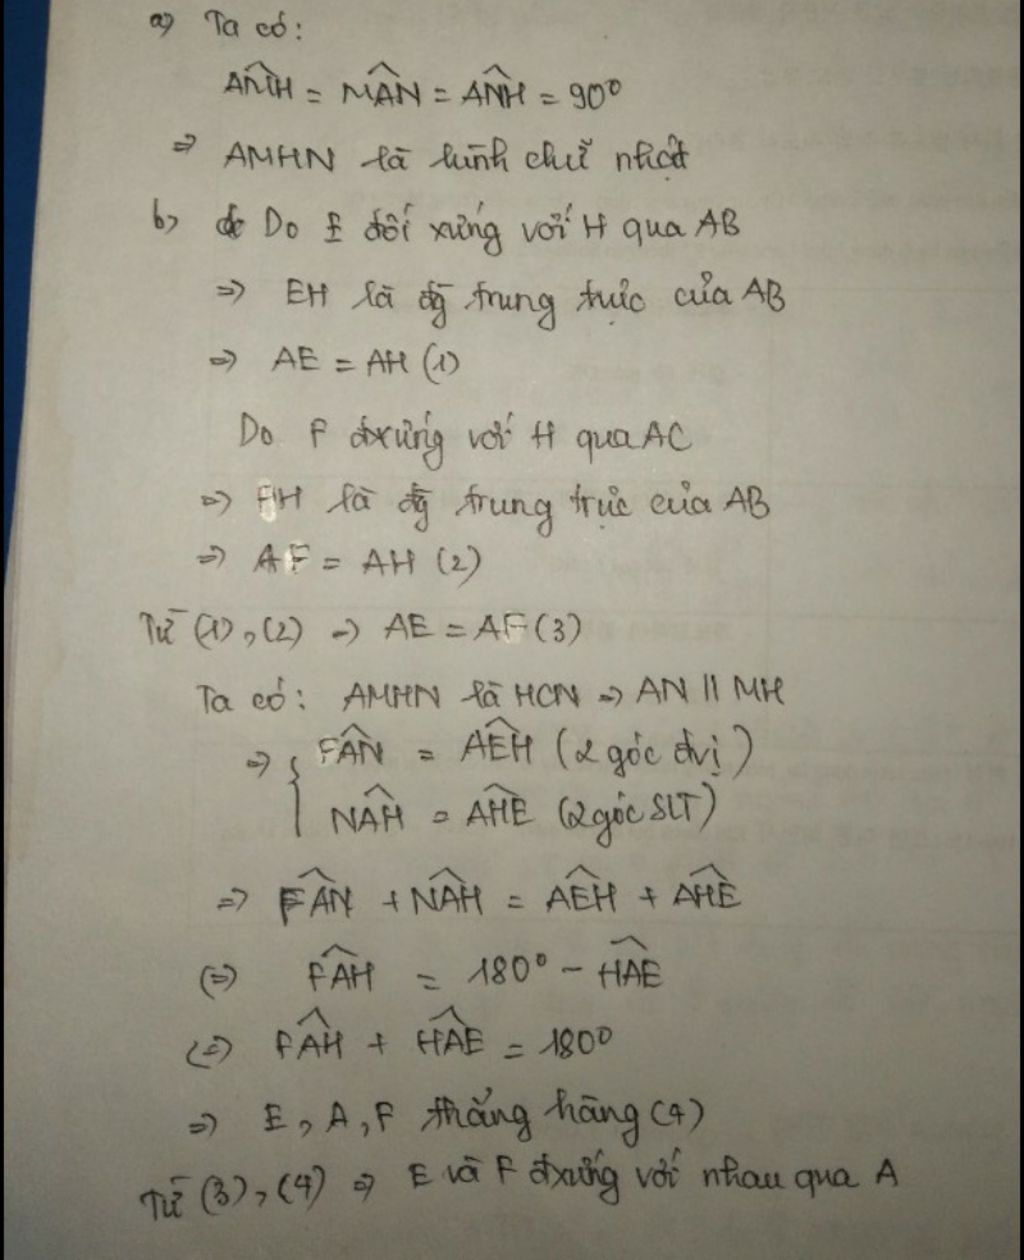 a) Ta có:
AMH = MAN = ANH = 90°
=> AMHN là hình chữ nhật
b) Do E đối xứng với H qua AB
=> EH là đg trung trực của AB
=> AE = AH (1)
Do F đxứng với H qua AC
=> FH là đg trung trực của AB
=> AF = AH (2)
Từ (1), (2) => AE = AF (3)
Ta có: AMHN là HCN => AN // MH
=> { FAN = AEH (2 góc đvị)
NAH = AHE (2 góc SLT)
=> FAN + NAH = AEH + AHE
(=) FAH = 180° - HAE
(=) FAH + HAE = 180°
=> E, A, F thẳng hàng (4)
Từ (3), (4) => E và F đxứng với nhau qua A